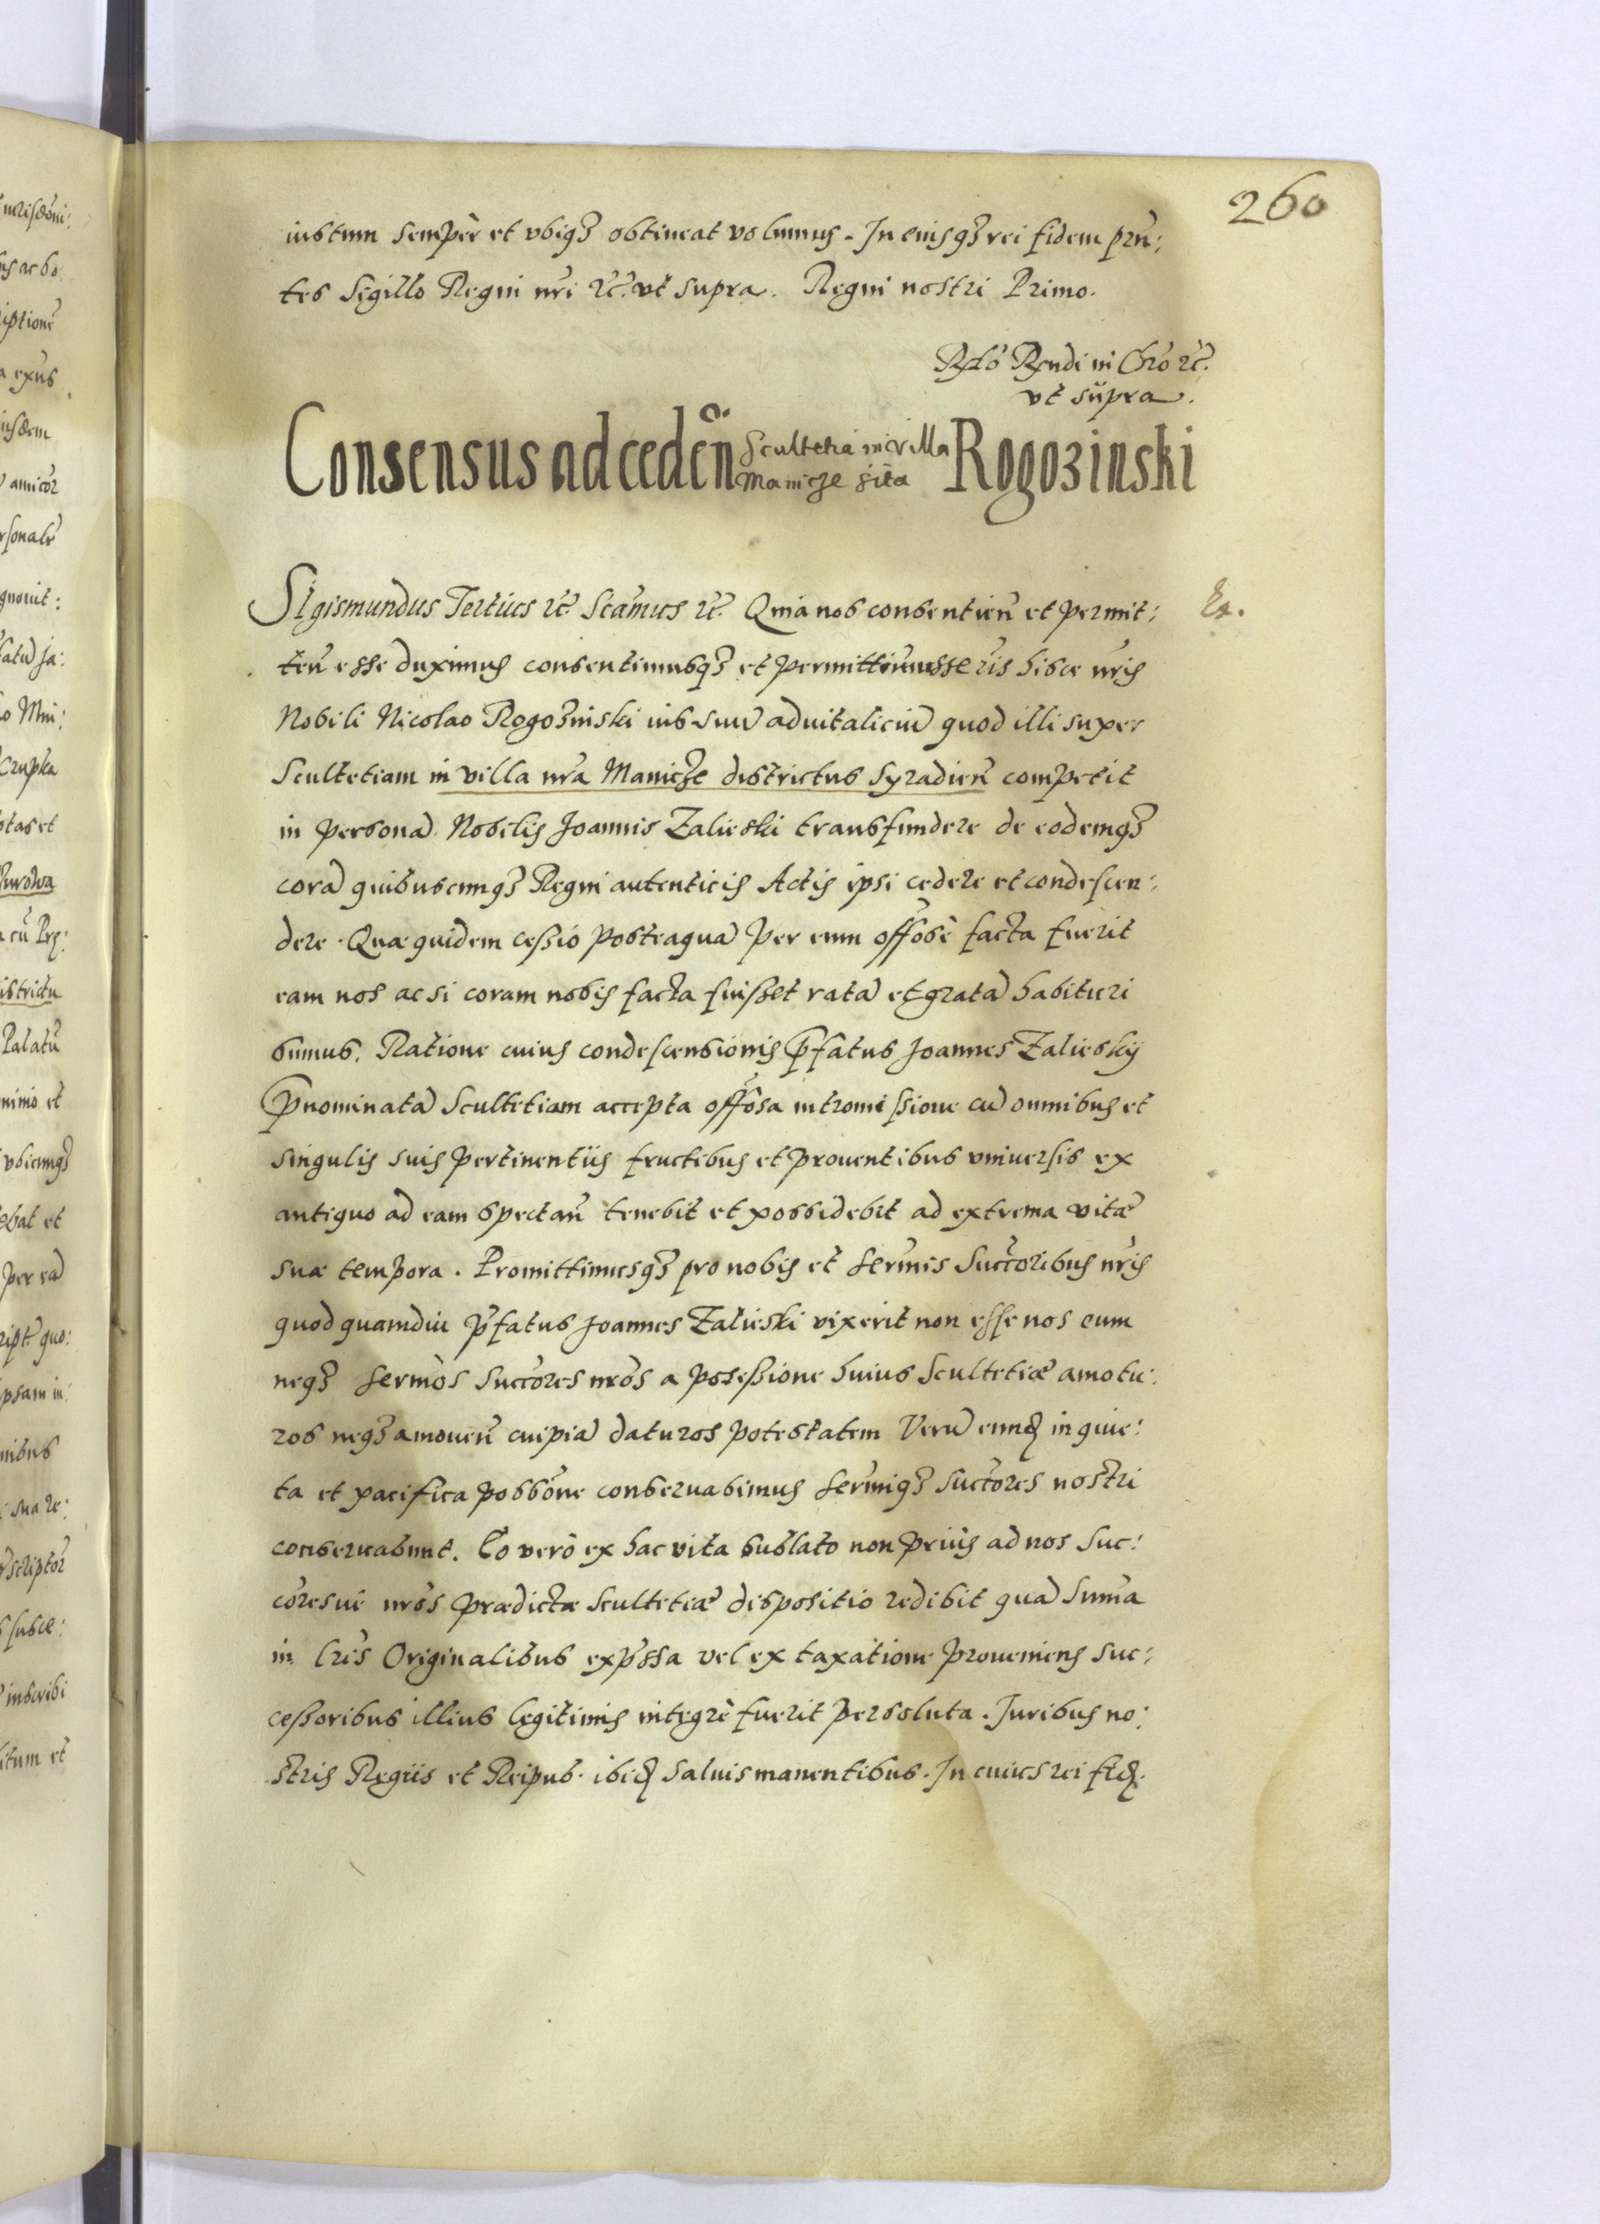 260
iustum semper et vbiq3 obtineat volumus. In cuisq3 rei fidem prñ:
tes Sigillo Regni nr̃i rc̃. vt supra. Regni nostri Primo.
Rlõ Rx̃ndi in Chr̃o rc̃.
vt supra.
Consensus ad ceden̄ Scultetiã in villa Manicze sitã Rogozinski
Sigismundus Tertius rc̃. Scãmus rc̃. Quia nos consentien̄ et permit:
Ex.
ten̄ esse duximus consentimusq3 et permittimus lr̃is hisce nr̃is
Nobili Nicolao Rogozinski ius suũ aduitaliciũ quod illi super
Scultetiam in villa nr̃a Manicze districtus Syradien̄ competit
in personã Nobilis Joannis Zalieski transfundere de eodemq3
corã quibuscunq3 Regni autenticis Actis ipsi cedere et condescen:
dere. Quæ quidem cessio posteaquã per eum offõsè facta fuerit
eam nos ac si coram nobis facta fuisset ratã et gratã habituri
sumus. Ratione cuius condescensionis p̃fatus Joannes Zaliesky
p̃nominatã Scultetiam accepta offõsa intromissione cũ omnibus et
singulis suis pertinentiis fructibus et prouentibus vniuersis ex
antiquo ad eam spectan̄ tenebit et possidebit ad extrema vitæ
suæ tempora. Promittimusq3 pro nobis et Serm̃is Succ̃oribus nr̃is
quod quamdiu p̃fatus Joannes Zalieski vixerit non esse nos eum
neq3 Serm̃os Succ̃ores nr̃os a posessione huius Scultetiæ amotu:
ros neq3 amouen̄ cuipiã daturos potestatem Verũ eund̃ in quie:
ta et pacifica possõne conseruabimus Serm̃iq3 Succ̃ores nostri
conseruabunt. Eo verò ex hac vita sublato non prius ad nos Suc:
c̃oresue nr̃os prædictæ Scultetiæ dispositio redibit quã Sum̃a
in lr̃is Originalibus exp̃ssa vel ex taxatione proueniens suc:
cessoribus illius legitimis integrè fuerit persoluta. Juribus no:
stris Regiis et Reipub. ibid̃ saluis manentibus. In cuius rei fid̃.